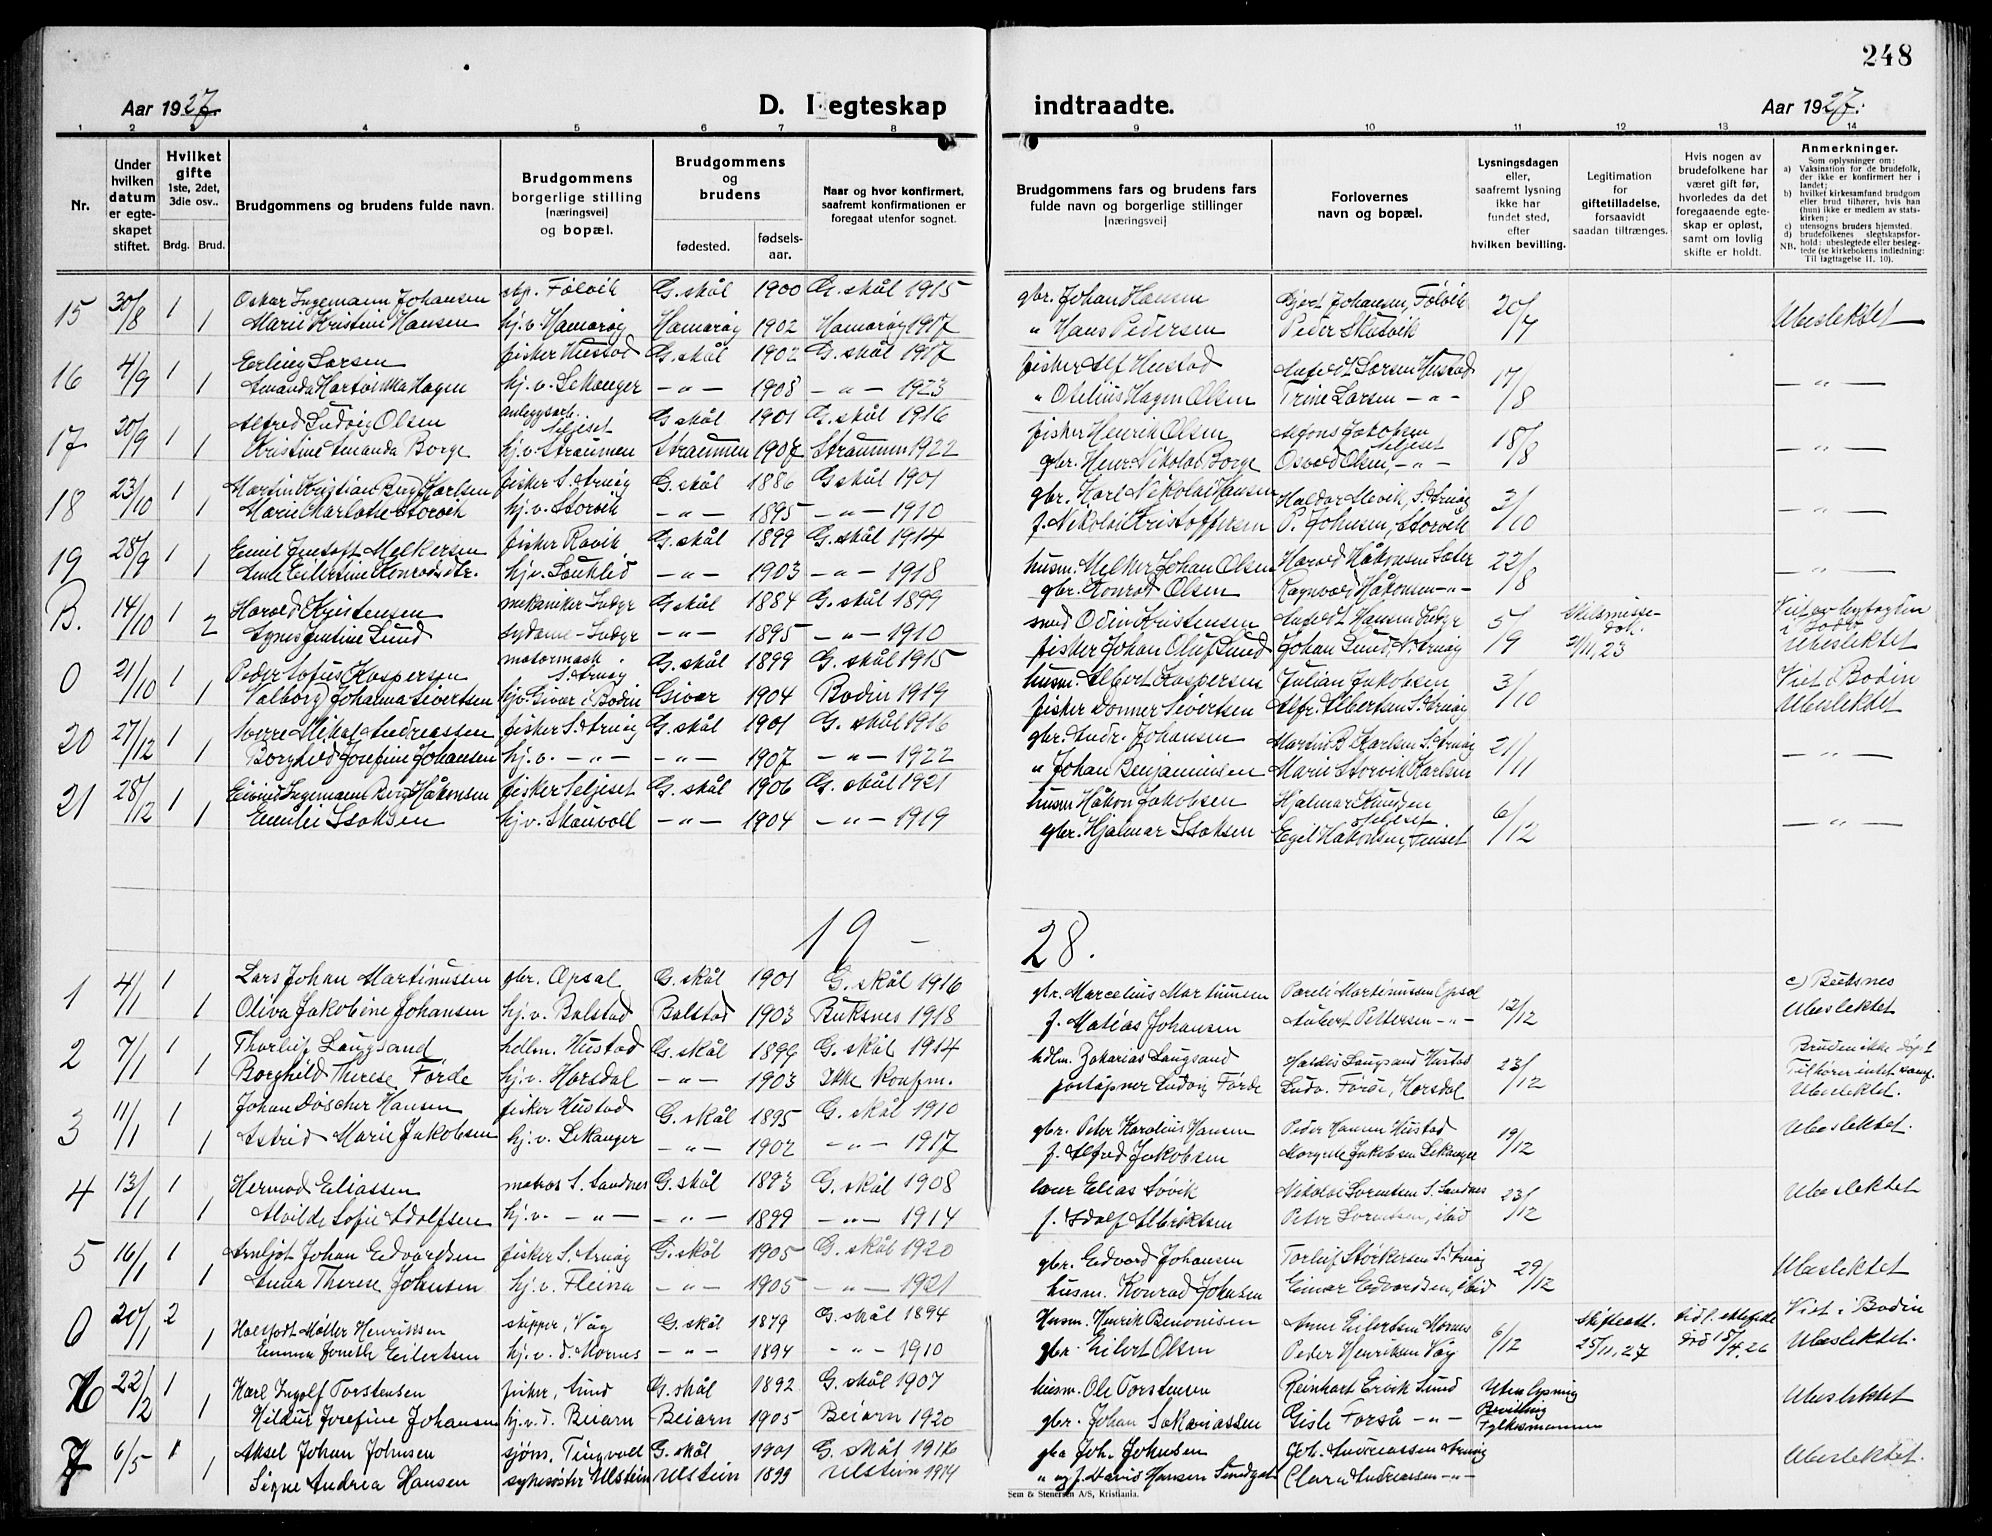 248
Aar 1927.
D. I egteskap indtraadte.
Aar 1927.
1 2 3 4 5 6 7 8 9 10 11 12 13 14
Nr.
Under hvilken datum er egteskapet stiftet.
Hvilket gifte 1ste, 2det, 3die osv..
Brdg. Brud.
Brudgommens og brudens fulde navn.
Brudgommens borgerlige stilling [næringsvei] og bopæl.
Brudgommens og brudens
fødested.
fødsels-aar.
Naar og hvor konfirmert, saafremt konfirmationen er foregaat utenfor sognet.
Brudgommens fars og brudens fars fulde navn og borgerlige stillinger [næringsvei]
Forlovernes navn og bopæl.
Lysningsdagen eller, saafremt lysning ikke har fundet sted, efter hvilken bevilling.
Legitimation for giftetilladelse, forsaavidt saadan tiltrænges.
Hvis nogen av brudefolkene har været gift før, hvorledes da det foregaaende egteskap er opløst, samt om lovlig skifte er holdt.
Anmerkninger.
Som oplysninger om:
a) Vaksination for de brudefolk, der ikke er konfirmert her i landet;
b) hvilket kirkesamfund brudgom eller brud tilhører, hvis han (hun) ikke er medlem av statskirken;
c) utensogns bruders hjemsted.
d) brudefolkenes slegtskapsforhold: ubeslegtede eller beslegtede (se kirkebokens indledning:
NB. Til Iagttagelse II. 10).
15 30/8 1 Oskar Ingemann Johansen Følvik G. skål 1900 G. skål 1915 gbr. Johan Hansen Johansen, Følvik 20/7 Ubeslektet
1 Marie Kristine Hansen hj.v. Hamarøy Hamarøy 1902 Hamarøy 1917 " Hans Pedersen Peder Skutvik
16 4/9 1 Erling Larsen fisker Hustad G. skål 1902 G. skål 1917 fisker Alf Hustad Larsen Hustad 17/8 — " —
1 Amanda Hartvikka Hagen hj.v. Lekanger — " — 1908 — " — 1923 " Otelius Hagen Olsen Trine Larsen — " —
17 20/9 1 Alfred Ludvig Olsen anleggsarb. Seljeset G. skål 1901 G. skål 1916 fisker Henrik Olsen Alfons Jakobsen Seljeset 18/8 — " —
1 Kristine Amanda Borge hj.v. Straumen Straumen 1907 Straumen 1922 gbr. Henr. Nikolai Borge Osvald Olsen, — " —
18 23/10 1 Martin Kristian Berg Karlsen fisker S. Arnøy G. skål 1886 G. skål 1901 gbr. Karl Nikolai Hansen Haldor Alsvik, S. Arnøy 3/10 — " —
1 Marie Charlotte Storvik hj.v. Storvik — " — 1895 — " — 1910 f. Nikolai Kristoffersen P. Johnsen, Storvik
19 28/9 1 Emil Jentoft Melkersen fisker Ravik G. skål 1899 G. skål 1914 husm. Melker Johan Olsen Harald Håkonsen Sæter 22/8 — " —
1 Anne Eilertine Konradsdtr. hj.v. Lauklid — " — 1903 — " — 1918 gbr. Konrad Olsen Ragnvald Håkonsen — " —
B. 14/10 1 Harald Kristensen mekaniker Indyr G. skål 1884 G. skål 1899 smed Odin Kristensen Hansen Indyr 5/9 Skilsmisse-dok. 21/11, 23
2 Agnes Jentine Lund sydame — Indyr — " — 1895 — " — 1910 fisker Johan Oluf Lund Johan Lund, N. Arnøy Ubeslektet
0 21/10 1 Peder Lofus Kaspersen motormask. S. Arnøy G. skål 1899 G. skål 1915 husm. Albert Kaspersen Julian Jakobsen 3/10 Viet i Bodin
1 Valborg Johanna Sivertsen hj.v. Givær i Bodin Givær 1904 Bodin 1919 fisker Donner Sivertsen Alfr. Albertsen S. Arnøy Ubeslektet
20 27/12 1 Sverre Mikal Andreassen fisker S. Arnøy G. skål 1901 G. skål 1916 gbr. Andr. Johansen Martin B. Karlsen S. Arnøy 21/11 — " —
1 Borghild Josefine Johansen hj.v. — " — — " — 1907 — " — 1922 " Johan Benjaminsen Marie Storvik Karlsen
21 28/12 1 Eivind Ingemann Berg Håkonsen fisker Seljeset G. skål 1906 G. skål 1921 husm. Håkon Jakobsen Hjalmar Knudsen Seljeset 6/12 — " —
1 Emilie Isaksen hj.v. Skauvoll — " — 1904 — " — 1919 gbr. Hjalmar Isaksen Egil Håkonsen,
19 — 28.
1 4/1 1 Lars Johan Martinussen gbr. Opsal G. skål 1901 G. skål 1916 gbr. Marcelius Martinussen Pareli Martinussen Opsal 12/12 c) Buksnes
1 Oliva Jakobine Johansen hj.v. Balstad Balstad 1903 Buksnes 1918 f. Matias Johansen Aubert Pettersen — " — Ubeslektet
2 7/1 1 Thorleif Laugsand hdlm. Hustad G. skål 1899 G. skål 1914 hdlm. Zakarias Laugsand Haldis Laugsand Hustad 23/12 Bruden ikke døpt
1 Borghild Therese Førde hj.v. Horsdal — " — 1903 Ikke konfrm. poståpner Ludvig Førde Ludv. Førde, Horsdal Tilhører intet samf. Ubeslektet.
3 11/1 1 Johan Døscher Hansen fisker Hustad G. skål 1895 G. skål 1910 gbr. Peter Karolius Hansen Peder Hansen Hustad 19/12 Ubeslektet.
1 Astrid Marie Jakobsen hj.v. Lekanger — " — 1902 — " — 1917 f. Alfred Jakobsen Margrete Jakobsen Lekanger
4 13/1 1 Hermod Eliassen matros S. Sandnes G. skål 1893 G. skål 1908 Elias Løvik Nikolai Lorentsen S. Sandnes 23/12 Ubeslektet
1 Alvilde Sofie Adolfsen hj.v. — " — — " — 1899 — " — 1914 f. Adolf Albriktsen Peter Lorentsen, ibid
5 16/1 1 Arnljot Johan Edvardsen fisker S. Arnøy G. skål 1905 G. skål 1920 gbr. Edvard Johansen Torleif Størkersen S. Arnøy 29/12 Ubeslektet
1 Anna Therese Johnsen hj.v. Fleina — " — 1905 — " — 1921 husm. Konrad Johnsen Einar Edvardsen, ibid
0 20/1 2 Halfodt Møller Henriksen skipper, Våg G. skål 1879 G. skål 1894 Husm. Henrik Benonisen Arne Eilertsen Mornes 6/12 Skifteatt. 25/11, 27 tidl. ektefelle død 18/4.26 Viet i Bodin
1 Emma Jonette Eilertsen hj.v. d. Mornes — " — 1894 — " — 1910 gbr. Eilert Olsen Peder Henriksen Våg Ubeslektet.
6 22/2 1 Karl Ingolf Torstensen fisker, Sund G. skål 1892 G. skål 1907 husm. Ole Torstensen Reinhart Ervik Sund Uten lysning Bevilling Fylkesmannen Ubeslektet
1 Hildur Josefine Johansen hj.v.d. Beiarn Beiarn 1905 Beiarn 1920 gbr. Johan Sakariassen Gisle Forså — " —
7 6/5 1 Aksel Johan Johnsen sjøm. Tingvoll G. skål 1901 G. skål 1916 gbr. Joh. Johnsen Joh. Andreassen Arnøy Ubeslektet.
1 Signe Andrea Hansen sykesøster Ulstein Ulstein 1899 Ulstein 1914 " og f. David Hansen Sundgot Clara Andreassen — " —
Sem & Stenersen A/S, Kristiania.